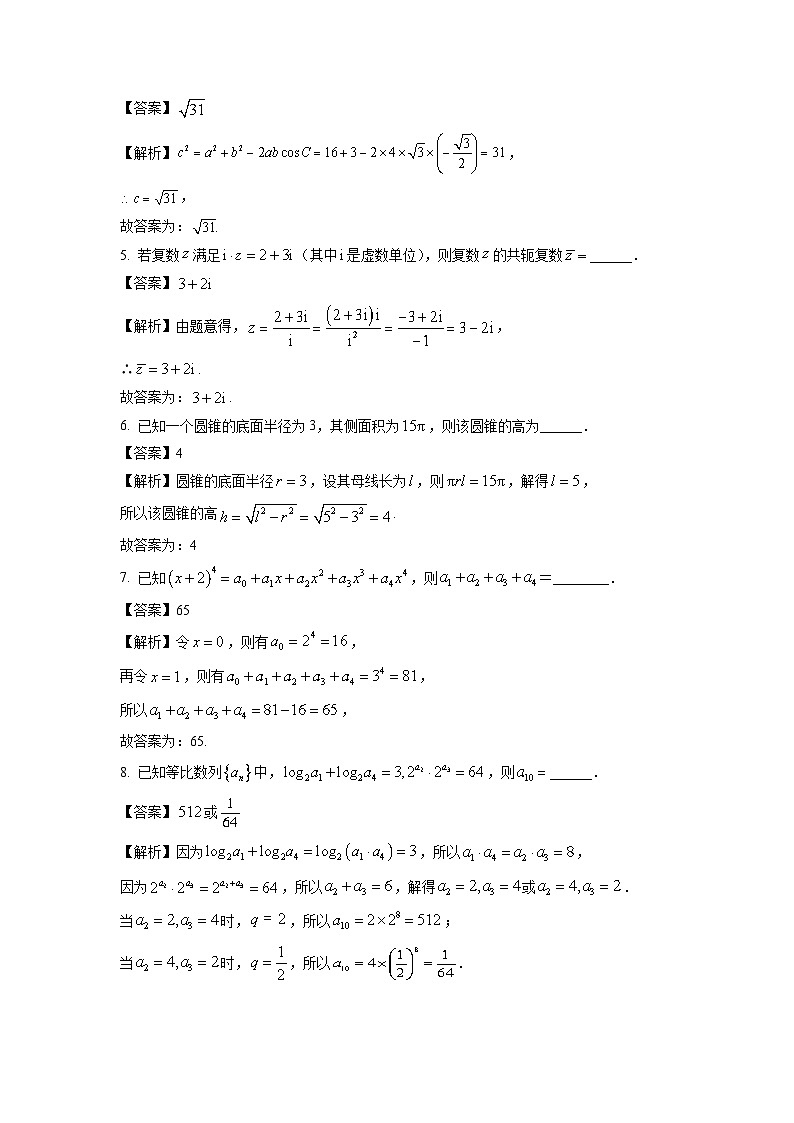 【答案】√31
【解析】c² = a² + b² − 2ab cos C = 16 + 3 − 2 × 4 × √3 × (−√3/2) = 31，
∴ c = √31，
故答案为：√31.
5. 若复数 z 满足 i · z = 2 + 3i（其中 i 是虚数单位），则复数 z 的共轭复数 z̅ = ______．
【答案】3 + 2i
【解析】由题意得，z = (2 + 3i)/i = ((2 + 3i)i)/i² = (−3 + 2i)/(−1) = 3 − 2i，
∴ z̅ = 3 + 2i．
故答案为：3 + 2i．
6. 已知一个圆锥的底面半径为 3，其侧面积为 15π，则该圆锥的高为______．
【答案】4
【解析】圆锥的底面半径 r = 3，设其母线长为 l，则 πrl = 15π，解得 l = 5，
所以该圆锥的高 h = √(l² − r²) = √(5² − 3²) = 4．
故答案为：4
7. 已知 (x + 2)⁴ = a₀ + a₁x + a₂x² + a₃x³ + a₄x⁴，则 a₁ + a₂ + a₃ + a₄ ＝________．
【答案】65
【解析】令 x = 0，则有 a₀ = 2⁴ = 16，
再令 x = 1，则有 a₀ + a₁ + a₂ + a₃ + a₄ = 3⁴ = 81，
所以 a₁ + a₂ + a₃ + a₄ = 81 − 16 = 65，
故答案为：65.
8. 已知等比数列 {aₙ} 中，log₂a₁ + log₂a₄ = 3, 2^(a₂) · 2^(a₃) = 64，则 a₁₀ = ______．
【答案】512 或 1/64
【解析】因为 log₂a₁ + log₂a₄ = log₂(a₁ · a₄) = 3，所以 a₁ · a₄ = a₂ · a₃ = 8，
因为 2^(a₂) · 2^(a₃) = 2^(a₂+a₃) = 64，所以 a₂ + a₃ = 6，解得 a₂ = 2, a₃ = 4 或 a₂ = 4, a₃ = 2．
当 a₂ = 2, a₃ = 4 时，q = 2，所以 a₁₀ = 2 × 2⁸ = 512；
当 a₂ = 4, a₃ = 2 时，q = 1/2，所以 a₁₀ = 4 × (1/2)⁸ = 1/64．